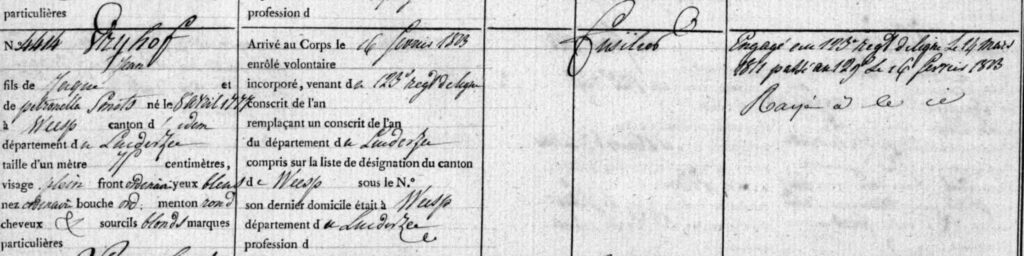 particulières
profession d
N.º 4414 Pryhof
Jean
fils de Jaque et
de petronella né le 8 avril
à Weesp canton d'idem
département du Zuiderzee
taille d'un mètre centimètres,
visage plein front ordinair yeux bleus
nez ordinair bouche ord. menton rond
cheveux & sourcils blonds marques
particulières
Arrivé au Corps le 16 fevrier 1813
enrôlé volontaire
incorporé, venant du 123e regt de ligne
conscrit de l'an
remplaçant un conscrit de l'an
du département du Zuiderzee
compris sur la liste de désignation du canton
de Weesp sous le N.º
son dernier domicile était à Weesp
département du Zuiderzee
profession d
Fusilier
Engagé au 123e regt de ligne le 14 mars
1811 passé au 129e le 16 fevrier 1813
Rayé à le ie